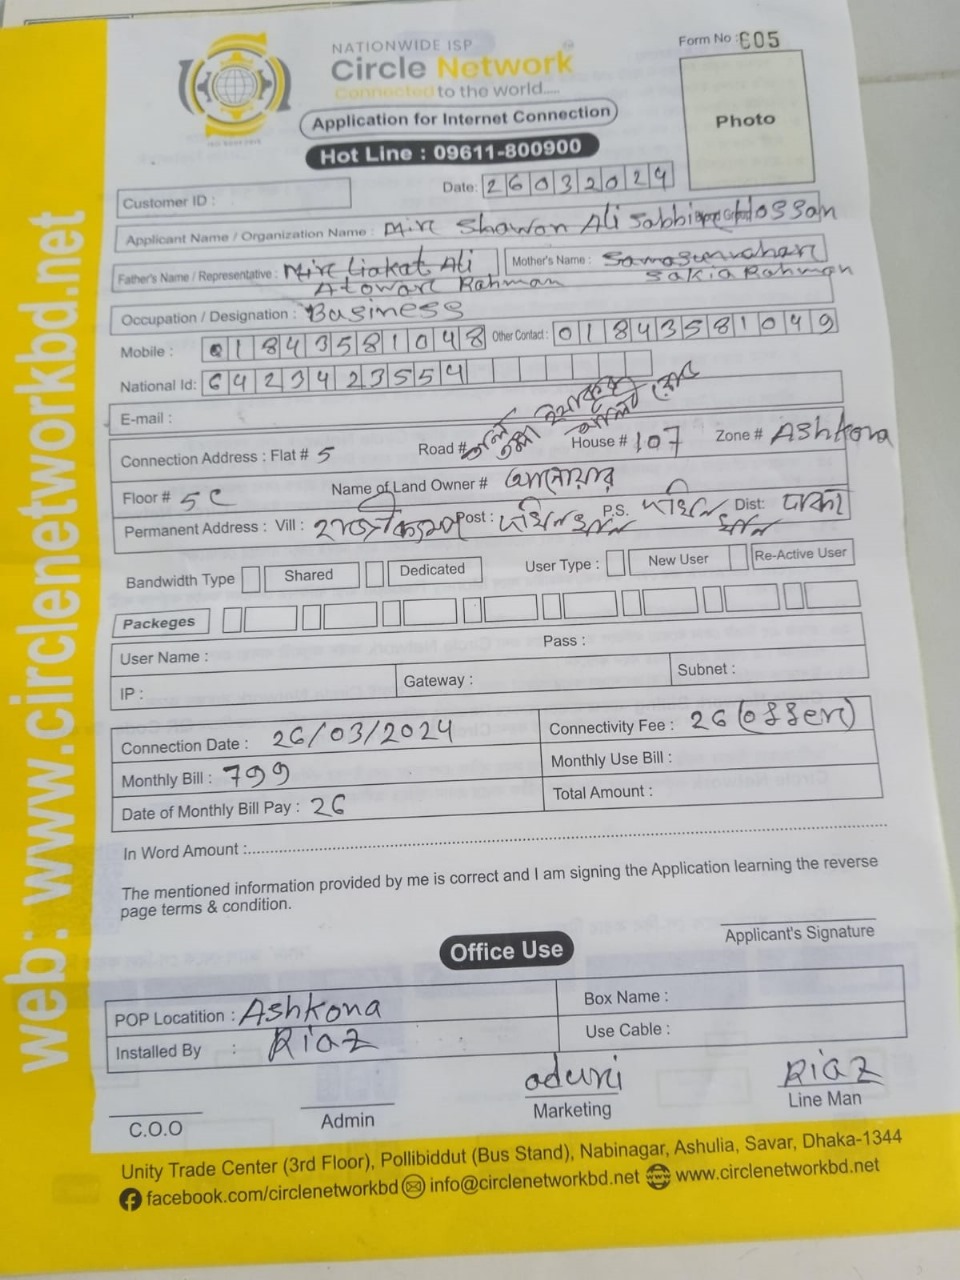 NATIONWIDE ISP
Circle Network
Connected to the world.....
Form No : 605
Application for Internet Connection
Hot Line : 09611-800900
Photo
Customer ID :
Date: 26032024
Applicant Name / Organization Name : Mir Shawon Ali Sabbir Hossan
Father's Name / Representative : Mir Liakat Ali
Atowar Rahman
Mother's Name : Samasunnahar
Sakia Rahman
Occupation / Designation : Business
Mobile : 01843581048 Other Contact : 01843581049
National Id: 6423423554
E-mail :
Connection Address : Flat # 5 Road # House # 107 Zone # Ashkona
Floor # 5C Name of Land Owner # আনোয়ার
Permanent Address : Vill : Post : P.S. Dist: ঢাকা
Bandwidth Type Shared Dedicated User Type : New User Re-Active User
Packeges
User Name : Pass :
IP : Gateway : Subnet :
Connection Date : 26/03/2024 Connectivity Fee : 26 (offer)
Monthly Bill : 799 Monthly Use Bill :
Date of Monthly Bill Pay : 26 Total Amount :
In Word Amount :
The mentioned information provided by me is correct and I am signing the Application learning the reverse
page terms & condition.
Applicant's Signature
Office Use
POP Locatition : Ashkona Box Name :
Installed By : Riaz Use Cable :
aduri Riaz
C.O.O Admin Marketing Line Man
Unity Trade Center (3rd Floor), Pollibiddut (Bus Stand), Nabinagar, Ashulia, Savar, Dhaka-1344
facebook.com/circlenetworkbd info@circlenetworkbd.net www.circlenetworkbd.net
web: www.circlenetworkbd.net